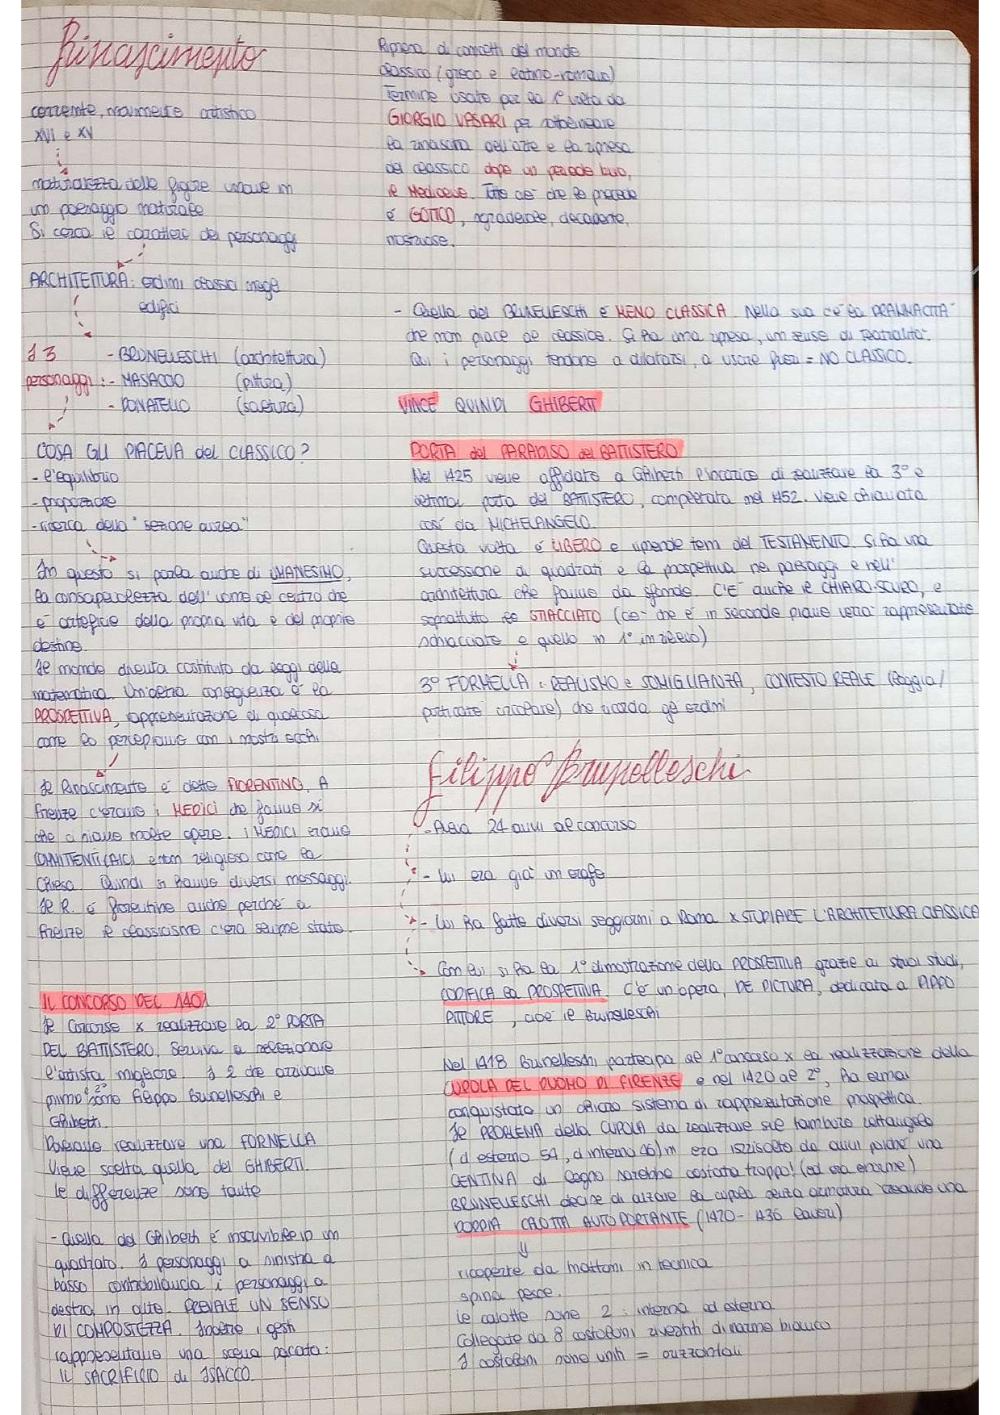 Rinascimento
corrente, movimento artistico
XVI e XV
naturalezza delle figure umane in
un paesaggio naturale
Si cerca il carattere dei personaggi
ARCHITETTURA: ordini classici negli
edifici
I 3
personaggi:
- BRUNELLESCHI (architettura)
- MASACCIO (pittura)
- DONATELLO (scultura)
COSA GLI PIACEVA del CLASSICO?
- l'equilibrio
- proporzione
- ricerca della "sezione aurea"
In questo si parla anche di UMANESIMO,
la consapevolezza dell'uomo al centro che
è artefice della propria vita e del proprio
destino.
Il mondo diventa costituito da leggi della
matematica. Un'altra conseguenza è la
PROSPETTIVA, rappresentazione di qualcosa
come lo percepiamo con i nostri occhi.
Il Rinascimento è detto FIORENTINO. A
Firenze c'erano i MEDICI che fanno sì
che ci siano molte opere. I MEDICI erano
COMMITTENTI LAICI e non religiosi come la
Chiesa. Quindi si hanno diversi messaggi.
Il R. è fiorentino anche perché a
Firenze il classicismo c'era sempre stato.
IL CONCORSO DEL 1401
Il Concorso x realizzare la 2° PORTA
DEL BATTISTERO. Serviva a selezionare
l'artista migliore. I 2 che arrivano
primo e 2° sono Filippo Brunelleschi e
Ghiberti.
Dovevano realizzare una FORMELLA
Viene scelta quella del GHIBERTI.
le differenze sono tante
- Quella del Ghiberti è inscrivibile in un
quadrato. I personaggi a sinistra a
basso controbilancia i personaggi a
destra in alto. PREVALE UN SENSO
DI COMPOSTEZZA. Inoltre i gesti
rappresentano una scena pacata:
IL SACRIFICIO di ISACCO.
Ripresa di concetti del mondo
classico (greco e latino-romano)
Termine usato per la 1° volta da
GIORGIO VASARI per sottolineare
la rinascita dell'arte e la ripresa
del classico dopo un periodo buio,
il Medioevo. Tutto ciò che lo precede
è GOTICO, sgradevole, decadente,
noioso.
- Quella del BRUNELLESCHI è MENO CLASSICA. Nella sua c'è la DRAMMACITÀ
che non piace al classico. Si ha una ripresa, un senso di teatralità.
Qui i personaggi tendono a dilatarsi, a uscire fuori = NO CLASSICO.
VINCE QUINDI GHIBERTI
PORTA del PARADISO del BATTISTERO
Nel 1425 viene affidato a Ghiberti l'incarico di realizzare la 3° e
ultima porta del BATTISTERO, completata nel 1452. Viene chiamata
così da MICHELANGELO.
Questa volta è LIBERO e riprende temi del TESTAMENTO. Si ha una
successione di quadrati e la prospettiva nei paesaggi e nell'
architettura che fanno da sfondo. C'È anche il CHIARO-SCURO, e
soprattutto lo STIACCIATO (ciò che è in secondo piano verrà rappresentato
schiacciato e quello in 1° in rilievo)
3° FORMELLA: REALISMO e SOMIGLIANZA, CONTESTO REALE (loggia/
porticato circolare) che ricorda gli ordini
Filippo Brunelleschi
- Aveva 24 anni al concorso
- Lui era già un orafo
- Lui ha fatto diversi soggiorni a Roma x STUDIARE L'ARCHITETTURA CLASSICA
Con lui si ha la 1° dimostrazione della PROSPETTIVA grazie ai suoi studi,
CODIFICA LA PROSPETTIVA. C'è un'opera, DE PICTURA, dedicata a PIPPO
PITTORE, cioè il Brunelleschi
Nel 1418 Brunelleschi partecipa al 1° concorso x la realizzazione della
CUPOLA DEL DUOMO DI FIRENZE e nel 1420 al 2°, ha ormai
conquistato un sistema di rappresentazione prospettica.
Il PROBLEMA della CUPOLA da realizzare sul tamburo ottagonale
(d esterno 54, d interno 46)m era irrisolto da anni poiché una
CENTINA di legno sarebbe costata troppo! (ed era enorme)
BRUNELLESCHI decise di alzare la cupola senza armatura creando una
DOPPIA CALOTTA AUTOPORTANTE (1420-1436 lavori)
ricoperte da mattoni in tecnica
spina pesce.
Le calotte sono 2: interna ed esterna
Collegate da 8 costoloni rivestiti di marmo bianco
I costoloni sono uniti = orizzontali